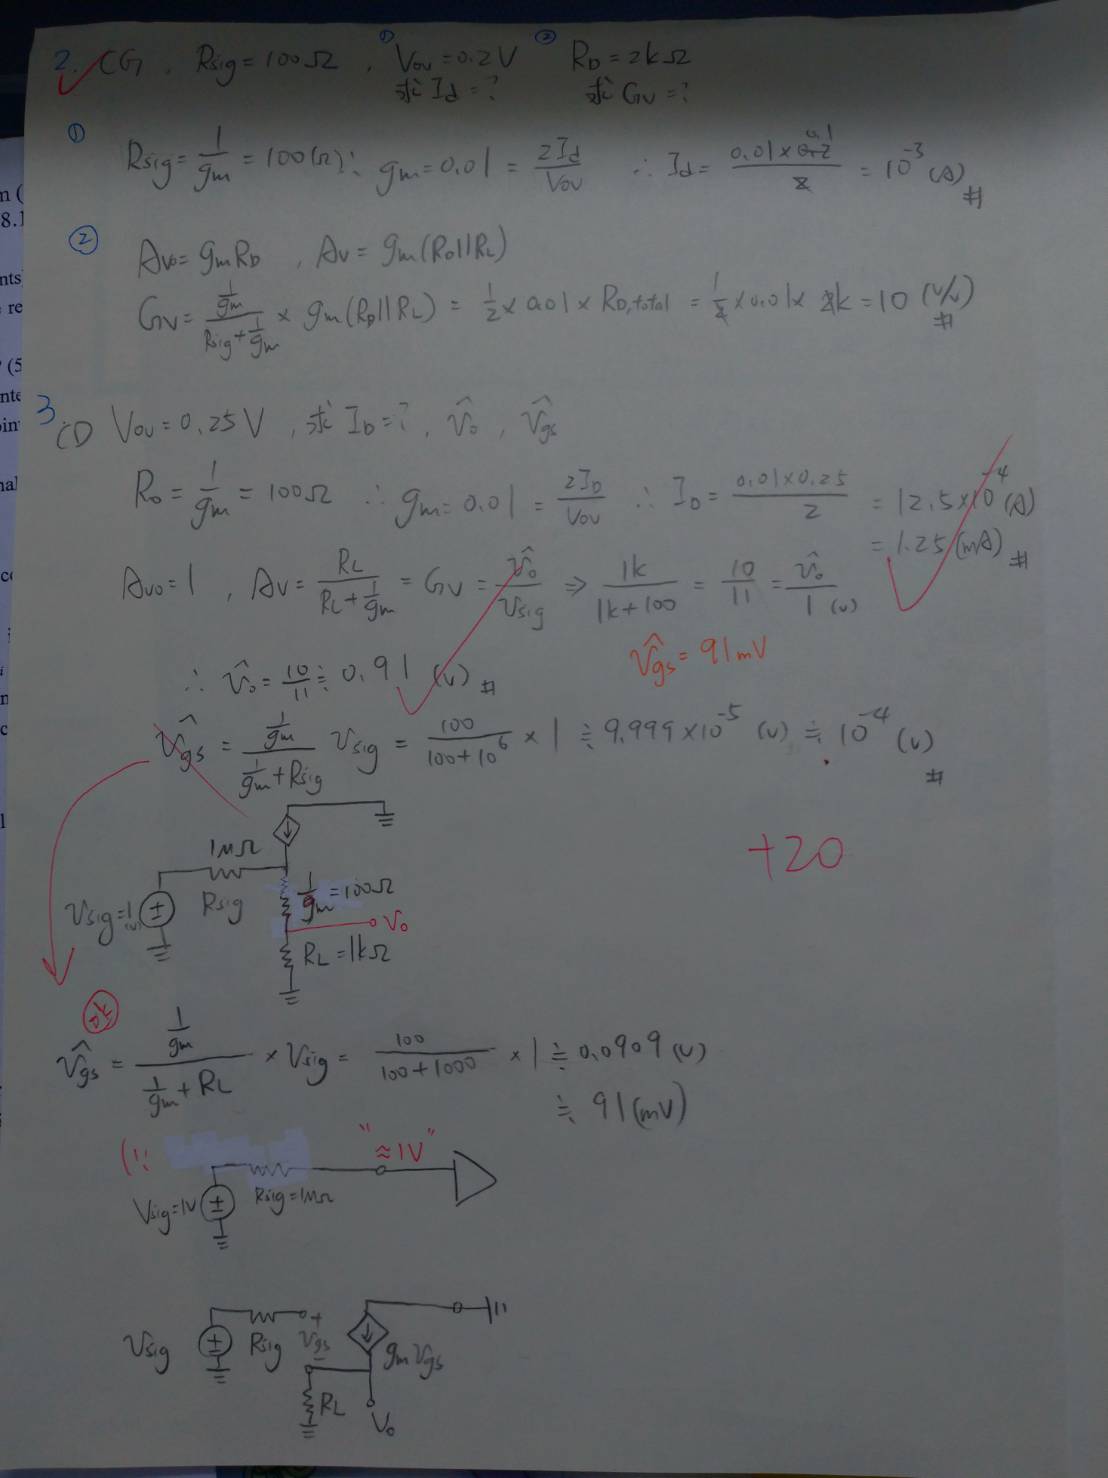 2. CG, Rsig = 100Ω, ① Vov = 0.2V ② RD = 2kΩ
求 Id = ? 求 Gv = ?
① Rsig = 1/gm = 100(Ω) ∴ gm = 0.01 = 2Id/Vov ∴ Id = 0.01×0.2/2 = 10⁻³ (A) #
② Avo = gmRD, Av = gm(RD||RL)
Gv = (1/gm)/(Rsig + 1/gm) × gm(RD||RL) = 1/2 × 0.01 × RD,total = 1/2 × 0.01 × 2k = 10 (V/V) #
3 CD Vov = 0.25V, 求 ID = ?, v̂o, v̂gs
Ro = 1/gm = 100Ω ∴ gm = 0.01 = 2ID/Vov ∴ ID = 0.01×0.25/2 = 12.5×10⁻⁴ (A)
= 1.25 (mA) #
Avo = 1, Av = RL/(RL + 1/gm) = Gv = v̂o/vsig ⇒ 1k/(1k+100) = 10/11 = v̂o/1(v)
v̂gs = 91mV
∴ v̂o = 10/11 ≒ 0.91 (v) #
v̂gs = (1/gm)/(1/gm + Rsig) vsig = 100/(100+10⁶) × 1 ≒ 9.999×10⁻⁵ (v) ≒ 10⁻⁴ (v) #
+20
1MΩ
Rsig
Vsig = 1(v)
1/gm = 100Ω
Vo
RL = 1kΩ
ok
v̂gs = (1/gm)/(1/gm + RL) × Vsig = 100/(100+1000) × 1 ≒ 0.0909 (v)
≒ 91 (mV)
(∵
"≈1V"
Vsig = 1V
Rsig = 1MΩ
Vsig
Rsig
+
Vgs
-
gmVgs
RL
Vo